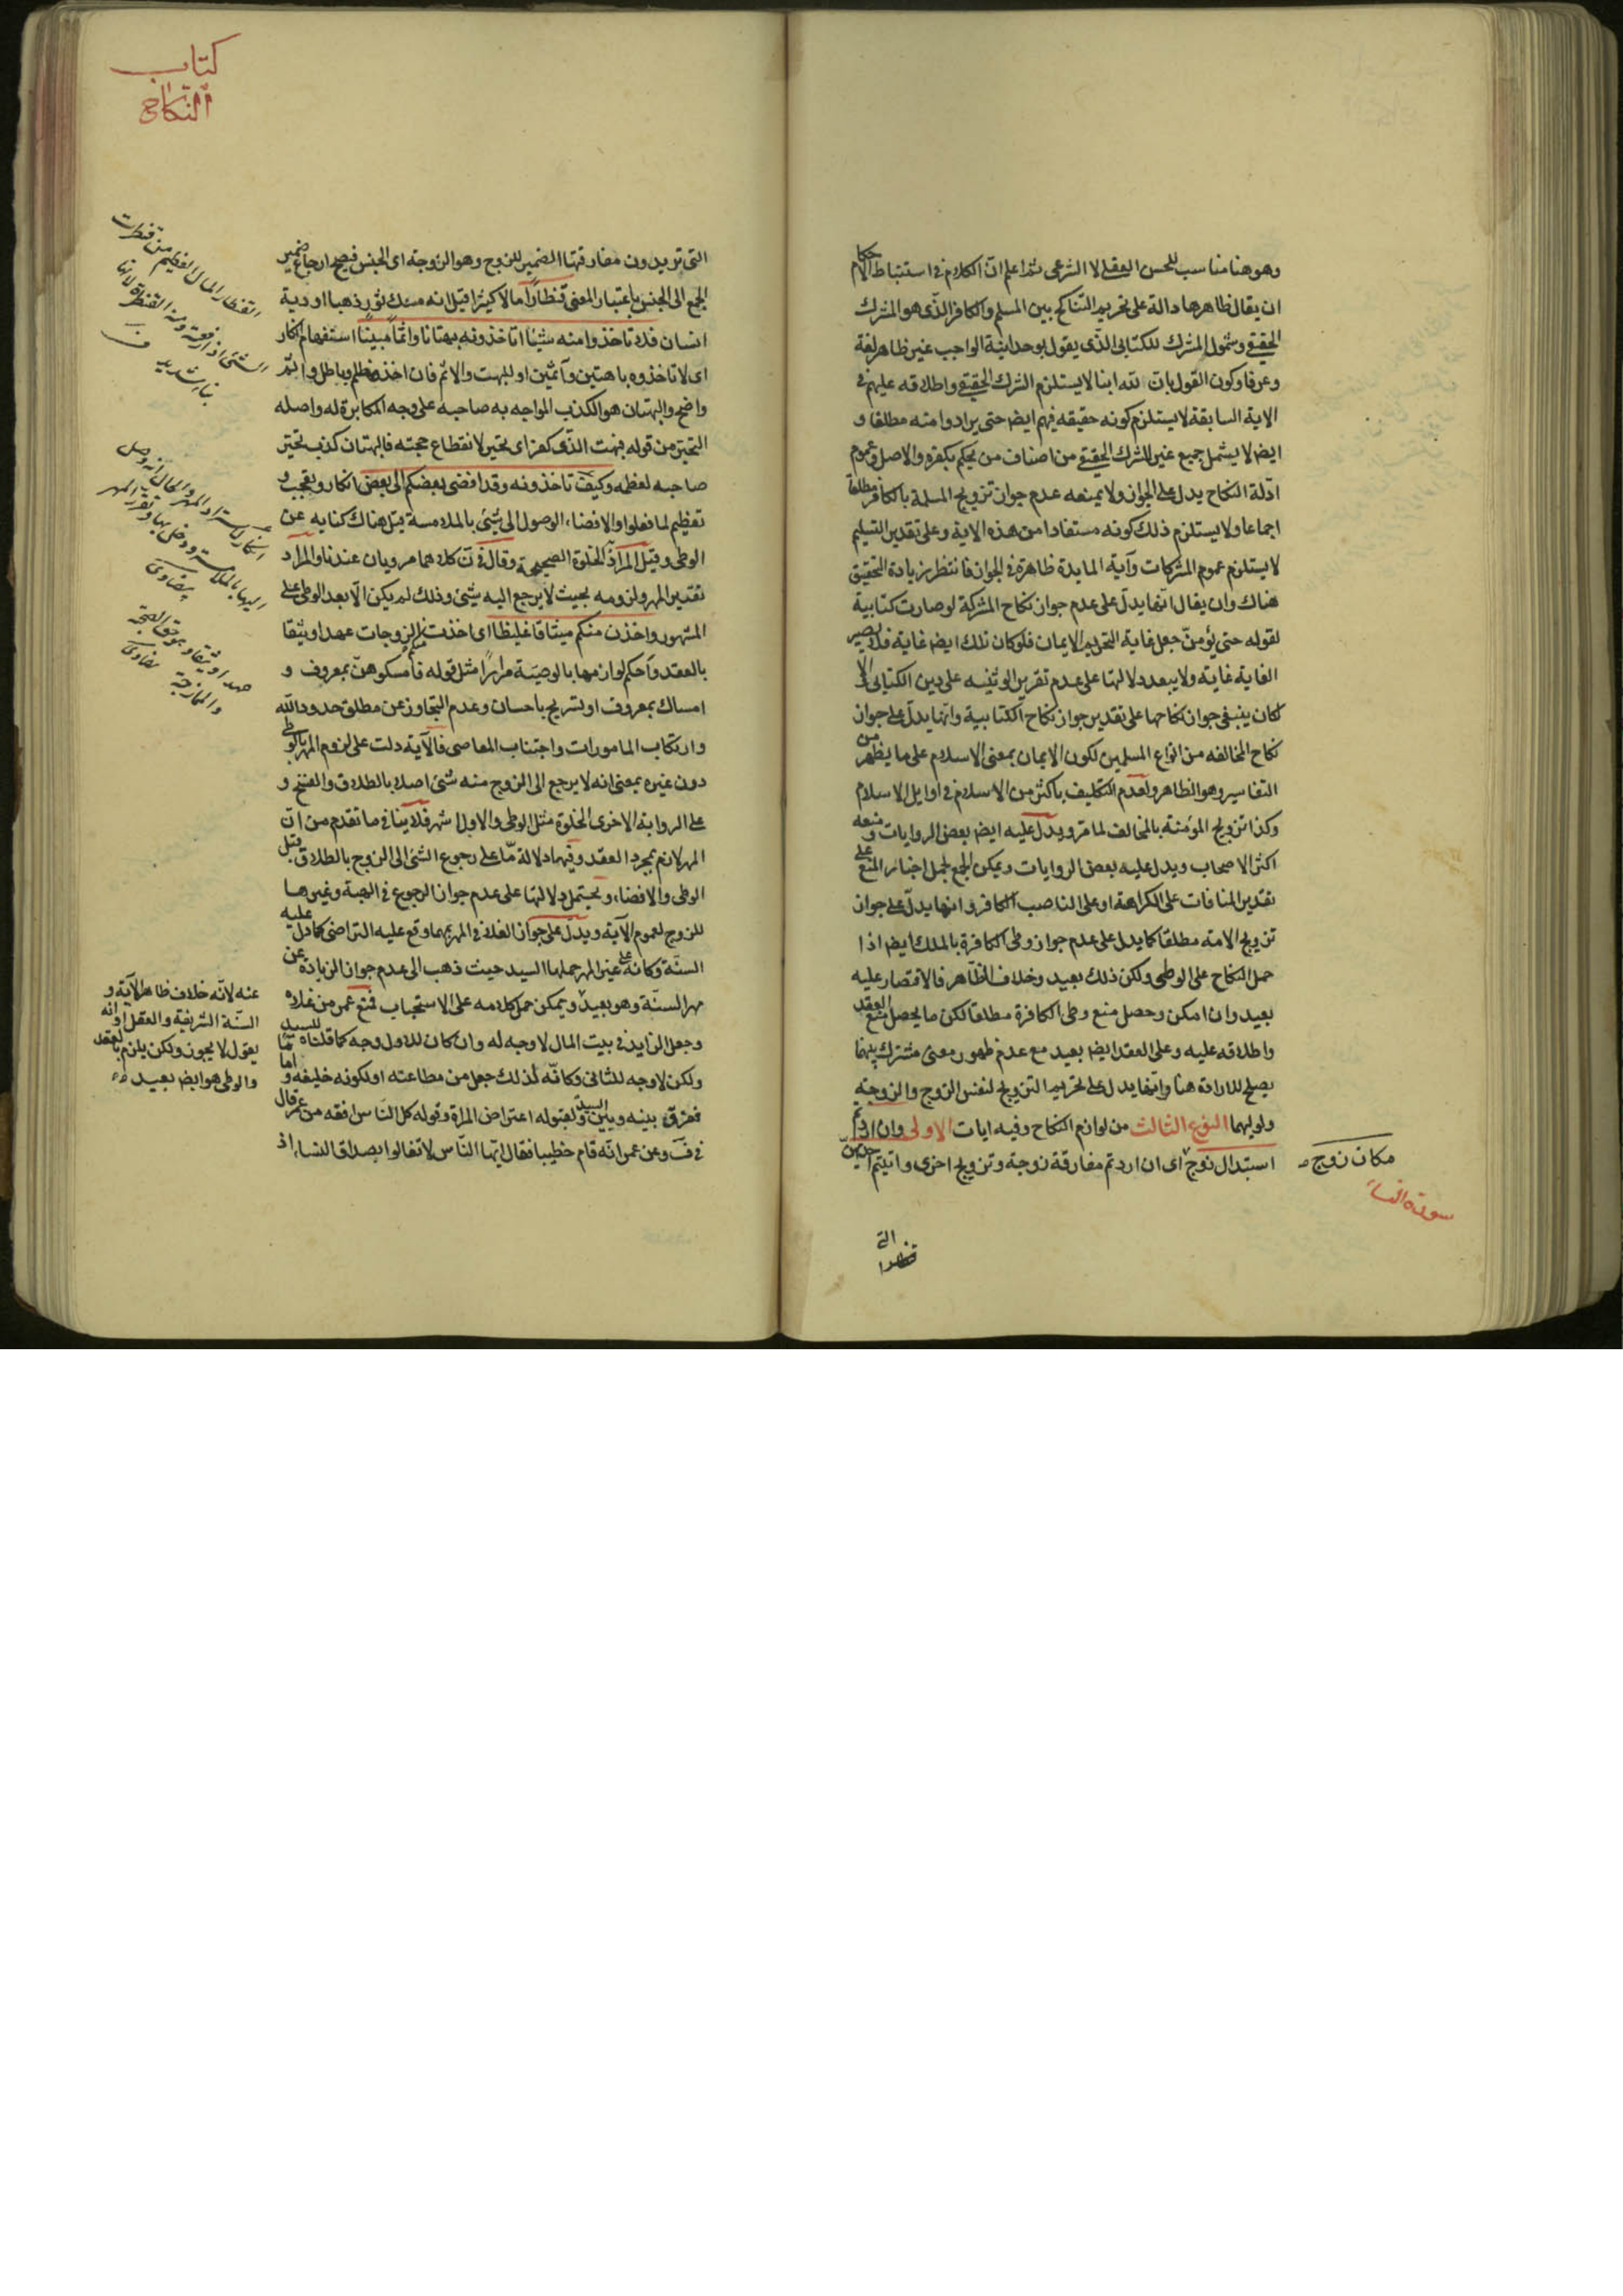 وهو هنا مناسب للحسن العقلى لا الشرعى ثم اعلم ان الكلام فى استنباط الاحكام
ان يقال ظاهرها دالة على تحريم التناكح بين المسلم والكافر الذى هو المشرك
الحقيقى وشمول المشرك للكتابى الذى يقول بوحدانية الواجب غير ظاهر لغة
وعرفا وكون القول بان لله ابنا لا يستلزم الشرك الحقيقى واطلاقه عليهم فى
الاية السابقة لا يستلزم كونه حقيقه فيهم ايض حتى يرادوا منه مطلقا و
ايض لا يشمل جميع غير المشرك الحقيقى من اصناف من يحكم بكفره والاصل وعموم
ادلة النكاح يدل على الجواز ولا يمنعه عدم جواز تزويج المسلمة بالكافر مطلقا
اجماعا ولا يستلزم ذلك كونه مستفادا من هذه الاية وعلى تقدير التسليم
لا يستلزم عموم المشركات وآية المايدة ظاهرة فى الجواز فانتظر زيادة التحقيق
هناك وان يقال انها يدل على عدم جواز نكاح المشركة لو صارت كتابية
لقوله حتى يؤمن جعل غاية التحريم الايمان فلو كان تلك ايض غاية فلا يصير
الغاية غاية ولا يبعد دلالتها على عدم تقرير الوثنيه على دين الكتابى والا
لكان ينبغى جواز نكاحها على تقدير جواز نكاح الكتابية وانها يدل على جواز
نكاح المخالفه من انواع المسلمين لكون الايمان بمعنى الاسلام على ما يظهر من
التفاسير وهو الظاهر ولعدم التكليف باكثر من الاسلام فى اوايل الاسلام
وكذا تزويج المؤمنة بالمخالف لما مر ويدل عليه ايض بعض الروايات ومنعه
اكثر الاصحاب ويدل عليه بعض الروايات ويمكن الجمع بحمل اخبار المنع على
تقدير المنافات على الكراهة او على الناصب الكافر وانها يدل على جواز
تزويج الامة مطلقا كما يدل على عدم جواز وطى الكافرة بالملك ايض اذا
حمل النكاح على الوطى ولكن ذلك بعيد وخلاف الظاهر فالاقتصار عليه
بعيد وان امكن وحصل منع وطى الكافرة مطلقا لكن ما يحصل منع العقد
واطلاقه عليه وعلى العقد ايض بعيد مع عدم ظهور معنى مشترك بينهما
يصلح للارادة هنا وانها يدل على تحريم التزويج لنفس الزوج والزوجة
ولوليهما النوع الثالث من لوازم النكاح وفيه ايات الاولى وان اردتم
استبدال زوج اى ان اردتم مفارقة زوجة وتزويج اخرى واتيتم احديهن
مكان زوج
سورة النساء
التى
قنطارا
كتاب
النكاح
التى تريدون مفارقتها الضمير للزوج وهو الزوجة اى الجنس فيصح ارجاع ضمير
الجمع الى الجنس باعتبار المعنى قنطارا مالا كثيرا قيل انه مسك ثور ذهبا او دية
انسان فلا تاخذوا منه شيئا اتاخذونه بهتانا واثما مبينا استفهام انكار
اى لا تاخذوه باهتين وآثمين او للبهت والاثم فان اخذه ظلم وباطل واثم
واضح والبهتان هو الكذب المواجه به صاحبه على وجه المكابرة له واصله
التحير من قوله فبهت الذى كفر اى تحير لانقطاع حجته فالبهتان كذب تحير
صاحبه لعظمه وكيف تاخذونه وقد افضى بعضكم الى بعض انكار وتعجب و
تعظيم لما فعلوا والافضاء الوصول الى شئ بالملامسة قيل هناك كنايه عن
الوطى وقيل المراد الخلوة الصحيحة وقال فى ن كلاهما مرويان عندنا والمراد
تقدير المهر ولزومه بحيث لا يرجع اليه شئ وذلك لم يكن الا بعد الوطى على
المشهور واخذن منكم ميثاقا غليظا اى اخذت الزوجات عهدا وثيقا
بالعقد واحكم لوازمها بالوصية مرارا مثل قوله فأمسكوهن بمعروف و
امساك بمعروف او تسريح باحسان وعدم التجاوز عن مطلق حدود الله
وارتكاب المامورات واجتناب المعاصى فالآية دلت على لزوم المهر بالوطى
دون غيره بمعنى انه لا يرجع الى الزوج منه شئ اصلا بالطلاق والفسخ و
على الرواية الاخرى الخلوة مثل الوطى والاول اشهر فلا ينافى ما تقدم من ان
المهر لازم بمجرد العقد وفيها دلالة ما على رجوع الشئ الى الزوج بالطلاق قبل
الوطى والافضاء ويحتمل دلالتها على عدم جواز الرجوع فى الهبة وغيرها
للزوج لعموم الآية ويدل على جواز الغلاء فى المهر بهما وقع عليه التراضى كما دل عليه
السنة وكانه على غير المهر حملها السيد حيث ذهب الى عدم جواز الزيادة عن
مهر السنة وهو بعيد ويمكن حمل كلامه على الاستحباب فمنع عمر من غلاء
وجعل الزايد فى بيت المال لا وجه له وان كان للاول وجه كما قلناه للسيد
ولكن لا وجه للثانى وكانه لذلك جعل من مطاعنه او لكونه خليفه و اما
فرق بينه وبين السيد ولقبوله اعتراض المراة وقوله كل الناس افقه من عمر قال
فى ف وعن عمر انه قام خطيبا فقال ايها الناس لا تغالوا بصداق النساء اذ
القنطار المال العظيم من قنطرت
الشئ اذا رفعته ومنه القنطرة لانها
بناء مشيد
انكار لاسترداد المهر والحال انه وصل
اليها بالملامسة ودخل بها وتقرر المهر
بيضاوى
عهدا وثيقا وهو حق الصحبة
والممازجة بيضاوى
عنه لانه خلاف ظاهر الآية و
السنة الشريفة والعقل او انه
يقول لا يجوز ولكن يلزم بالعقد
والوطى هو ايض بعيد